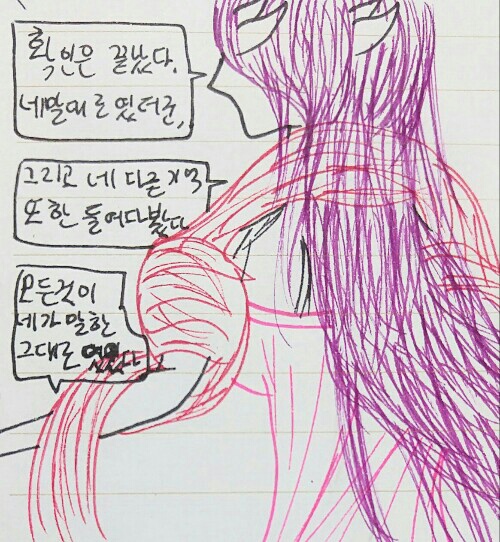 확인은 끝났다.
네말대로였더군,
그리고 네 다른 기억
또한 들여다봤다
모든것이
네가 말한
그대로 였다.